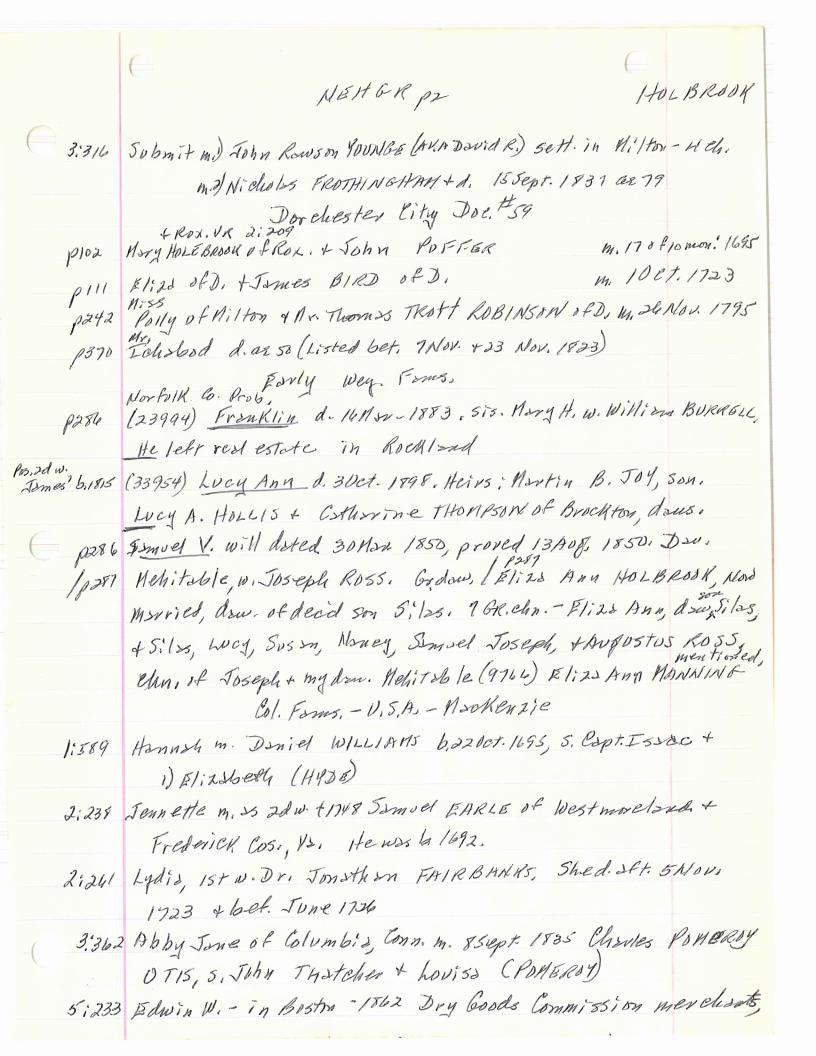 NEHGR p2 HOLBROOK
3:316 Submit m1) John Rawson YOUNGE (AKA David R.) sett. in Milton - 4 ch.
m2) Nicholas FROTHINGHAM + d. 15 Sept. 1837 ae 79
Dorchester City Doc. #59
+ Rox. VR 2:209
p102 Mary HOLEBROOK of Rox. + John POFFER m. 17 of 10 mon: 1695
p111 Eliza of D. + James BIRD of D. m. 1 Oct. 1723
Miss
p242 Polly of Milton + Mr. Thomas TROTT ROBINSON of D. m. 26 Nov. 1795
Mr.
p370 Ichabod d. ae 50 (Listed bet. 7 Nov. + 23 Nov. 1823)
Early Wey. Fams.
Norfolk Co. Prob.
p286 (23994) Franklin d. 16 Mar - 1883. sis. Mary H. w. William BURRELL.
He left real estate in Rockland
Pos. 2d w.
James b. 1815 (33954) Lucy Ann d. 3 Oct. 1898. Heirs: Martin B. JOY, son.
Lucy A. HOLLIS + Catharine THOMPSON of Brockton, daus.
p286 Samuel V. will dated 30 Mar 1850, proved 13 Aug. 1850. Dau.
/p287 Mehitable, w. Joseph ROSS. Gr. dau. / p287 Eliza Ann HOLBROOK, Now
married, dau. of dec'd son Silas. 7 GR. chn. - Eliza Ann, dau. son Silas,
+ Silas, Lucy, Susan, Nancy, Samuel Joseph, + AUGUSTUS ROSS,
chn. of Joseph + my dau. Mehitable (9766) Eliza Ann MANNING mentioned.
Col. Fams. - U.S.A. - MacKenzie
1:589 Hannah m. Daniel WILLIAMS b. 22 Oct. 1695, s. Capt. Issac +
1) Elizabeth (HYDE)
2:238 Jennette m. as 2d w. + 1748 Samuel EARLE of Westmoreland +
Frederick Cos., Va. He was b 1692.
2:261 Lydia, 1st w. Dr. Jonathan FAIRBANKS. She d. aft. 5 Nov.
1723 + bef. June 1726
3:362 Abby Jane of Columbia, Conn. m. 8 Sept. 1835 Charles POMEROY
OTIS, s. John Thatcher + Louisa (POMEROY)
5:233 Edwin W. - in Boston - 1862 Dry Goods Commission merchants,